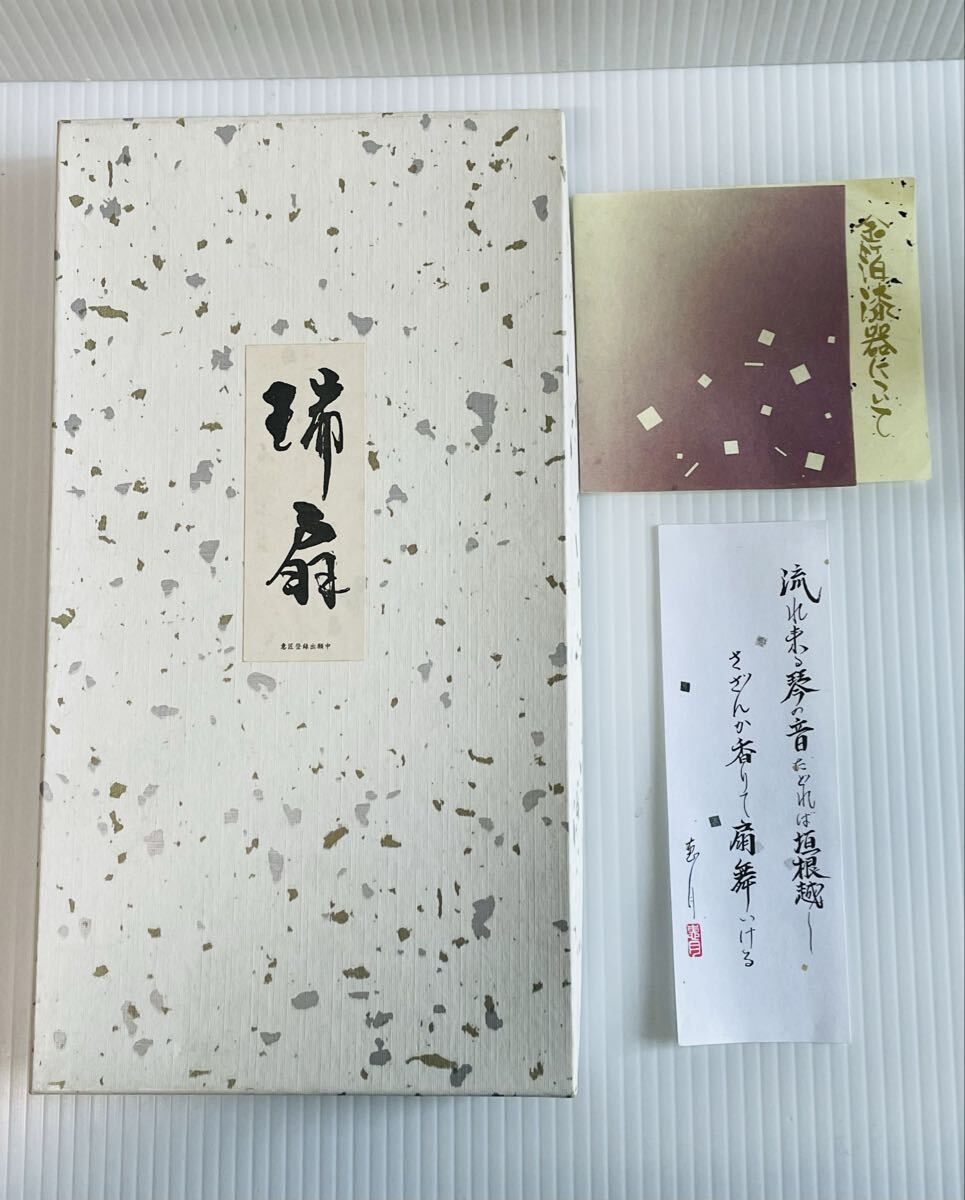 瑞扇
意匠登録出願中
金箔漆器について
流れ来る琴の音たどれば垣根越し
さざんか香りて扇舞いける
恵月
恵月